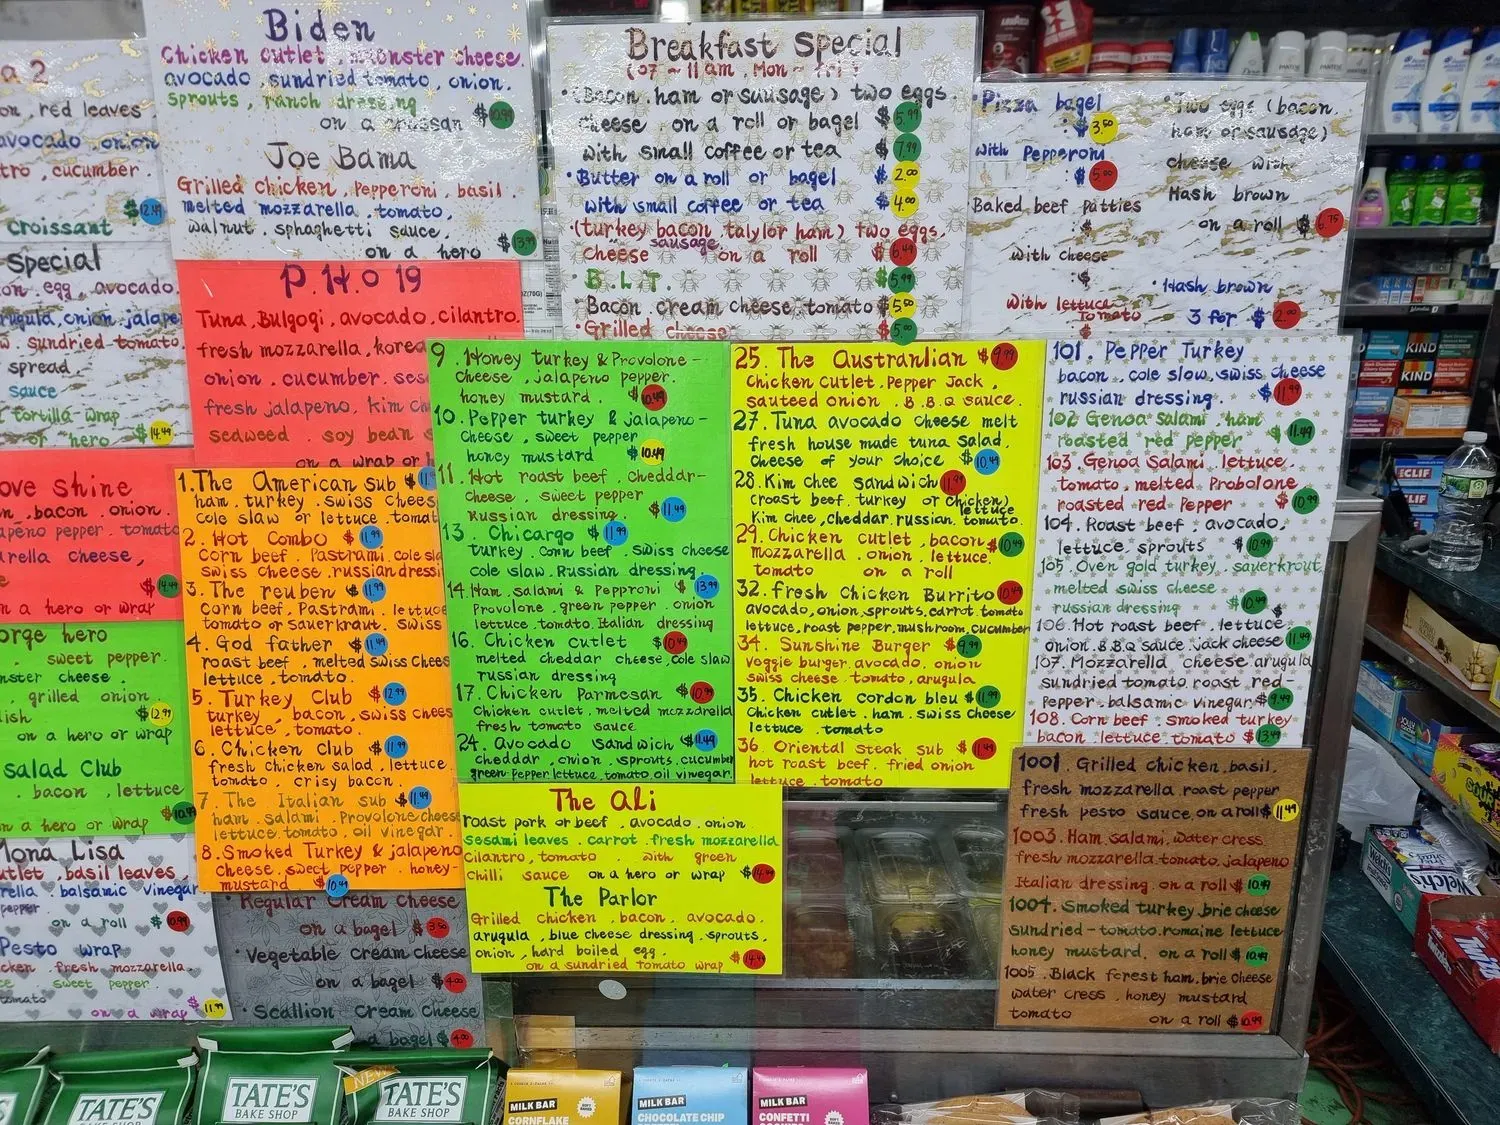 a 2
on, red leaves
avocado, onion
tro, cucumber.
$12.49
Croissant
special
on, egg, avocado.
rugula, onion, jalape
w. sundried tomato
spread,
sauce
tortilla wrap
or hero $14.49
ove shine
n, bacon, onion.
apeno pepper, tomato
arella cheese,
$14.49
n a hero or wrap
orge hero
, sweet pepper.
nster cheese.
, grilled onion.
ish $12.99
on a hero or wrap
salad Club
. bacon, lettuce
n a hero or wrap $10.49
Mona Lisa
utlet, basil leaves,
rella, balsamic vinegar
pepper
on a roll $10.99
Pesto wrap
cken, fresh mozzarella.
sweet pepper.
tomato
on a wrap $11.99
Biden
Chicken cutlet, muenster cheese.
avocado, sundried tomato, onion.
sprouts, ranch dressing
on a crussan $10.99
Joe Bama
Grilled chicken, Pepperoni, basil.
melted mozzarella, tomato,
walnut, sphaghetti sauce,
on a hero $13.99
P.H.O 19
Tuna, Bulgogi, avocado, cilantro.
fresh mozzarella, korea
onion, cucumber, ses
fresh jalapeno, kim ch
seaweed, soy bean s
on a wrap or h
1. The American Sub $11
ham, turkey, swiss chees
cole slaw or lettuce, tomat
2. Hot Combo $11.99
Corn beef, Pastrami, cole sl
swiss cheese, russian dressi
3. The reuben $11.99
corn beef, Pastrami, lettuce
tomato or sauerkraut, swiss
4. God father $11.49
roast beef, melted swiss chees
lettuce, tomato.
5. Turkey Club $12.99
turkey, bacon, swiss chees
lettuce, tomato.
6. Chicken Club $11.99
fresh chicken salad, lettuce
tomato, crisy bacon.
7. The Italian sub $11.49
ham, salami, Provolone chees
lettuce, tomato, oil vinegar.
8. Smoked Turkey & jalapeno
cheese, sweet pepper, honey-
mustard $10.49
Regular cream cheese
on a bagel $3.50
· Vegetable cream cheese
on a bagel $4.00
· Scallion Cream Cheese
a bagel $4.00
Breakfast special
(07 ~ 11 am, Mon ~ Fri)
· (Bacon, ham or sausage) two eggs,
cheese, on a roll or bagel $5.99
with small coffee or tea $7.99
· Butter on a roll or bagel $2.00
with small coffee or tea $4.00
· (turkey bacon, talylor ham) two eggs,
cheese sausage on a roll $6.49
· B.L.T. $5.99
· Bacon cream cheese, tomato $5.50
· Grilled cheese $5.00
9. Honey turkey & Provolone-
cheese, jalapeno pepper.
honey mustard. $10.49
10. Pepper turkey & jalapeno-
cheese, sweet pepper
honey mustard $10.49
11. Hot roast beef, cheddar-
cheese, sweet pepper
Russian dressing. $11.49
13. Chicargo $11.99
turkey, corn beef, swiss cheese
cole slaw, Russian dressing.
14. Ham, salami & Pepproni $13.99
Provolone, green pepper, onion
lettuce, tomato, Italian dressing
16. Chicken Cutlet $10.49
melted cheddar cheese, cole slaw
russian dressing
17. Chicken Parmesan $10.99
Chicken cutlet, melted mozzarella
fresh tomato sauce.
24. Avocado Sandwich $11.49
cheddar, onion, sprouts, cucumber
green pepper, lettuce, tomato, oil vinegar.
The Ali
roast pork or beef, avocado, onion
Sesami leaves, carrot, fresh mozzarella
cilantro, tomato, with green
chilli sauce on a hero or wrap $14.49
The Parlor
Grilled chicken, bacon, avocado,
arugula, blue cheese dressing, sprouts,
onion, hard boiled egg.
on a sundried tomato wrap $14.49
25. The Austranlian $9.99
Chicken cutlet, Pepper Jack,
sauteed onion, B.B.Q sauce.
27. Tuna avocado cheese melt
fresh house made tuna salad,
cheese of your choice $10.49
28. Kim chee sandwich 11.99
(roast beef, turkey or chicken)
Kim chee, cheddar, russian, lettuce tomato.
29. Chicken cutlet, bacon $10.49
mozzarella, onion, lettuce,
tomato on a roll
32. fresh Chicken Burrito 10.49
avocado, onion, sprouts, carrot, tomato
lettuce, roast pepper, mushroom, cucumber
34. Sunshine Burger $9.99
Voggie burger, avocado, onion
swiss cheese, tomato, arugula
35. Chicken cordon bleu $11.99
Chicken cutlet, ham, swiss cheese
lettuce, tomato
36. Oriental steak sub $11.49
hot roast beef, fried onion
lettuce, tomato
· Pizza bagel
$3.50
with Pepperoni
$5.00
Baked beef patties
$
with cheese
$
with lettuce
tomato
$
· Two eggs (bacon,
ham or sausage)
cheese with
Hash brown
on a roll $6.75
· Hash brown
3 for $2.00
101. Pepper Turkey
bacon, cole slow, swiss cheese
russian dressing. $11.99
102 Genoa Salami, ham
roasted red pepper $11.49
103. Genoa Salami, lettuce.
tomato, melted Probolone
roasted red Pepper $10.99
104. Roast beef, avocado,
lettuce, sprouts $10.99
105. Oven gold turkey, sauerkrout
melted swiss cheese
russian dressing $10.49
106. Hot roast beef, lettuce
onion, B.B.Q sauce, jack cheese 11.49
107. Mozzarella cheese, arugula
sundried tomato, roast red-
pepper, balsamic vinegar $9.49
108. Corn beef, smoked turkey
bacon, lettuce, tomato $13.49
1001. Grilled chicken, basil,
fresh mozzarella, roast pepper
fresh pesto sauce, on a roll $11.49
1003. Ham, salami, water cress
fresh mozzarella, tomato, jalapeno
Italian dressing, on a roll $10.99
1004. Smoked turkey, brie cheese
sundried-tomato, romaine lettuce
honey mustard, on a roll $10.99
1005. Black forest ham, brie cheese
water cress, honey mustard
tomato on a roll $10.49
KIND
KIND
ECLIF
CLIF
PANTENE
Welch's
TATE'S
BAKE SHOP
TATE'S
BAKE SHOP
NEW
TATE'S
BAKE SHOP
MILK BAR
CORNFLAKE
MILK BAR
CHOCOLATE CHIP
MILK BAR
CONFETTI